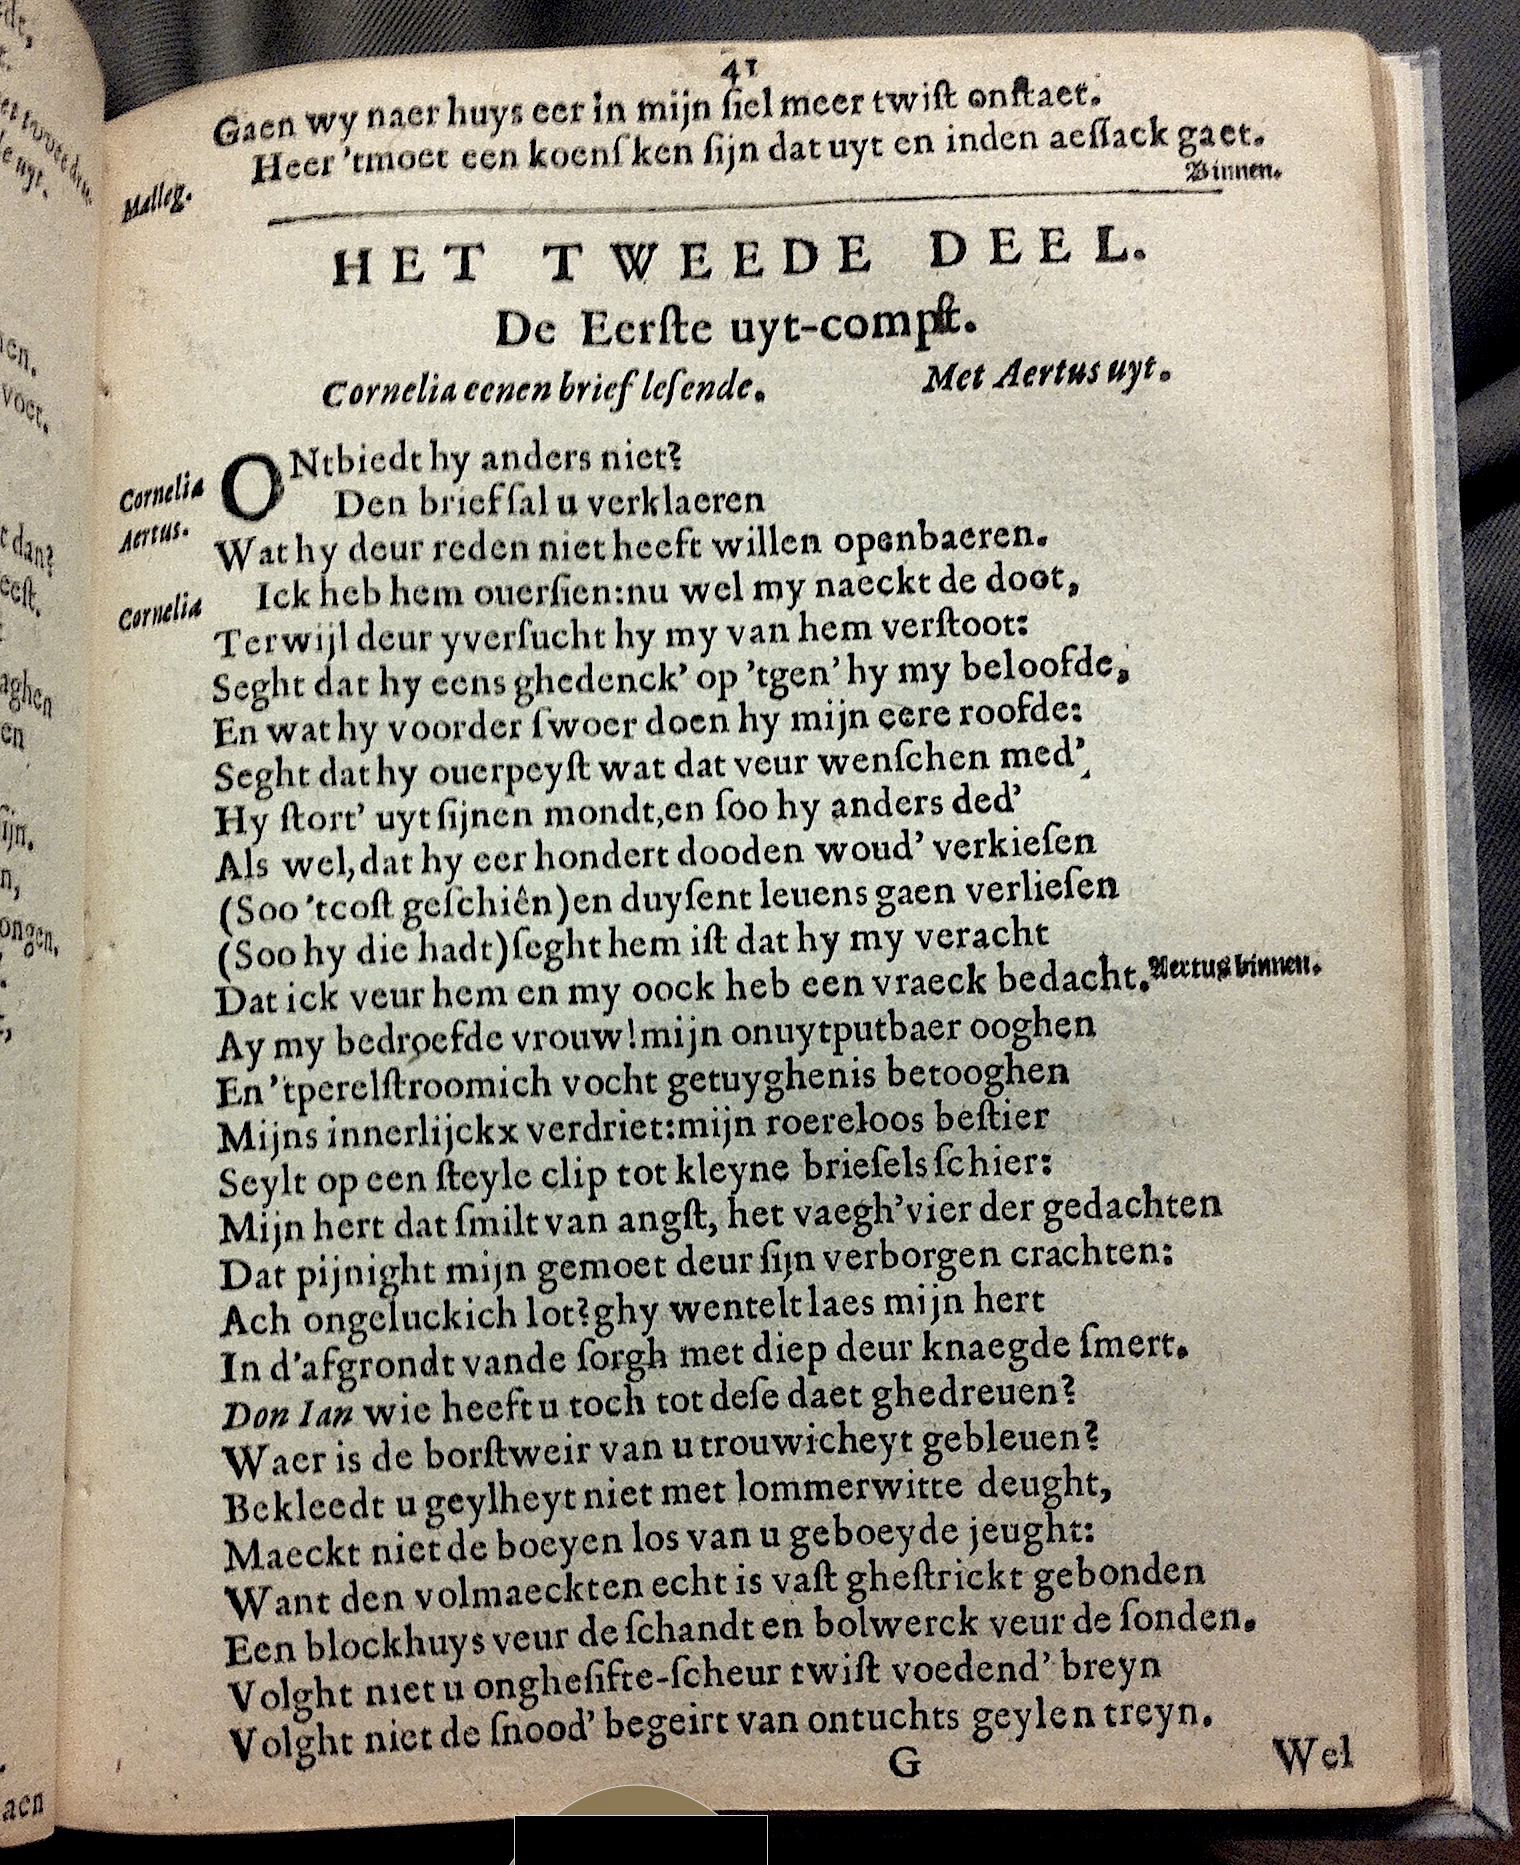 41
Gaen wy naer huys eer in mijn ſiel meer twiſt onſtaet.
Malleg. Heer 'tmoet een koenſ ken ſijn dat uyt en inden aeſſack gaet.
Binnen.
HET TWEEDE DEEL.
De Eerſte uyt-compſt.
Cornelia eenen brief leſende. Met Aertus uyt.
Cornelia ONtbiedt hy anders niet?
Aertus. Den brief ſal u verklaeren
Wat hy deur reden niet heeft willen openbaeren.
Cornelia Ick heb hem ouerſien:nu wel my naeckt de doot,
Terwijl deur yverſucht hy my van hem verſtoot:
Seght dat hy eens ghedenck' op 'tgen' hy my beloofde,
En wat hy voorder ſwoer doen hy mijn eere roofde:
Seght dat hy ouerpeyſt wat dat veur wenſchen med',
Hy ſtort' uyt ſijnen mondt,en ſoo hy anders ded'
Als wel,dat hy eer hondert dooden woud' verkieſen
(Soo 'tcoſt geſchiên)en duyſent leuens gaen verlieſen
(Soo hy die hadt)ſeght hem iſt dat hy my veracht
Dat ick veur hem en my oock heb een vraeck bedacht. Aertus binnen.
Ay my bedroefde vrouw!mijn onuytputbaer ooghen
En 'tperelſtroomich vocht getuyghenis betooghen
Mijns innerlijckx verdriet:mijn roereloos beſtier
Seylt op een ſteyle clip tot kleyne brieſels ſchier:
Mijn hert dat ſmilt van angſt, het vaegh'vier der gedachten
Dat pijnight mijn gemoet deur ſijn verborgen crachten:
Ach ongeluckich lot?ghy wentelt laes mijn hert
In d'afgrondt vande ſorgh met diep deur knaegde ſmert.
Don Ian wie heeft u toch tot deſe daet ghedreuen?
Waer is de borſtweir van u trouwicheyt gebleuen?
Bekleedt u geylheyt niet met lommerwitte deught,
Maeckt niet de boeyen los van u geboeyde jeught:
Want den volmaeckten echt is vaſt gheſtrickt gebonden
Een blockhuys veur de ſchandt en bolwerck veur de ſonden.
Volght niet u ongheſifte-ſcheur twiſt voedend' breyn
Volght niet de ſnood' begeirt van ontuchts geylen treyn.
G Wel